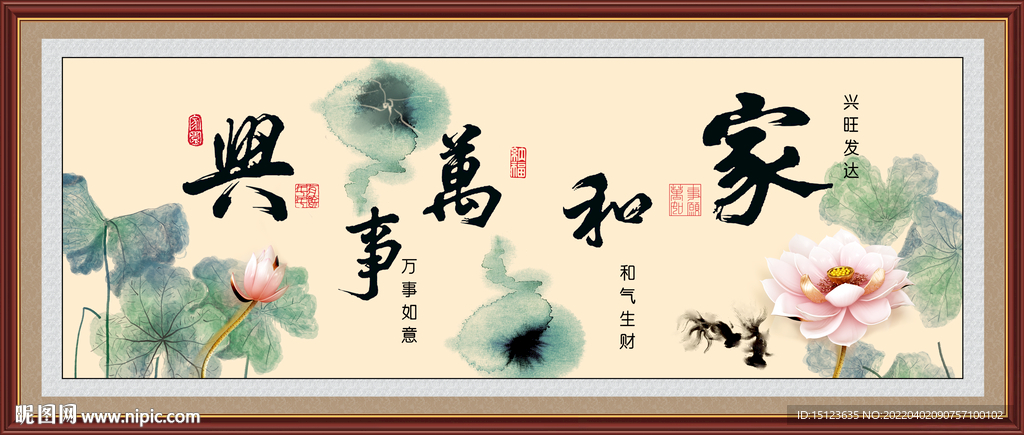 家和萬事興
兴旺发达
和气生财
万事如意
昵图网 www.nipic.com
ID:15123635 NO:20220402090757100102